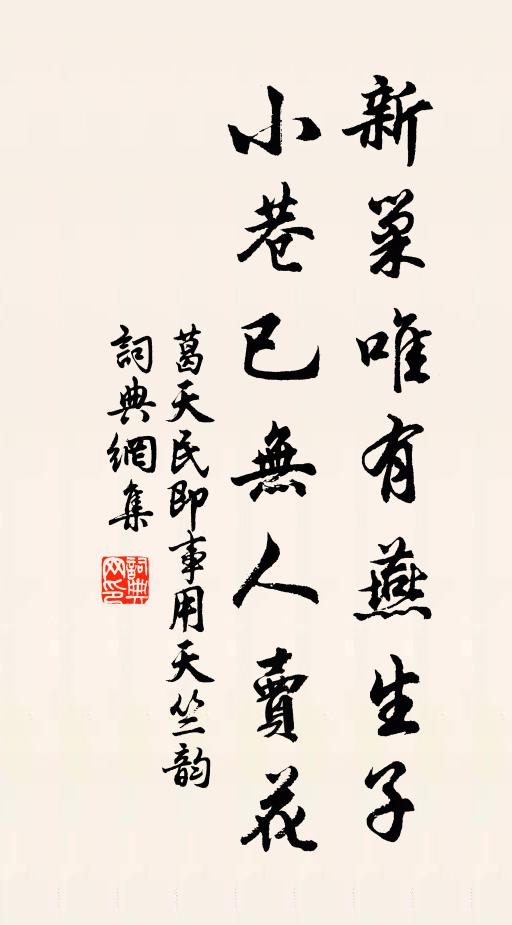 新巢唯有燕生子
小巷已無人賣花
葛天民即事用天竺韵
詞典網集
詞典
网印